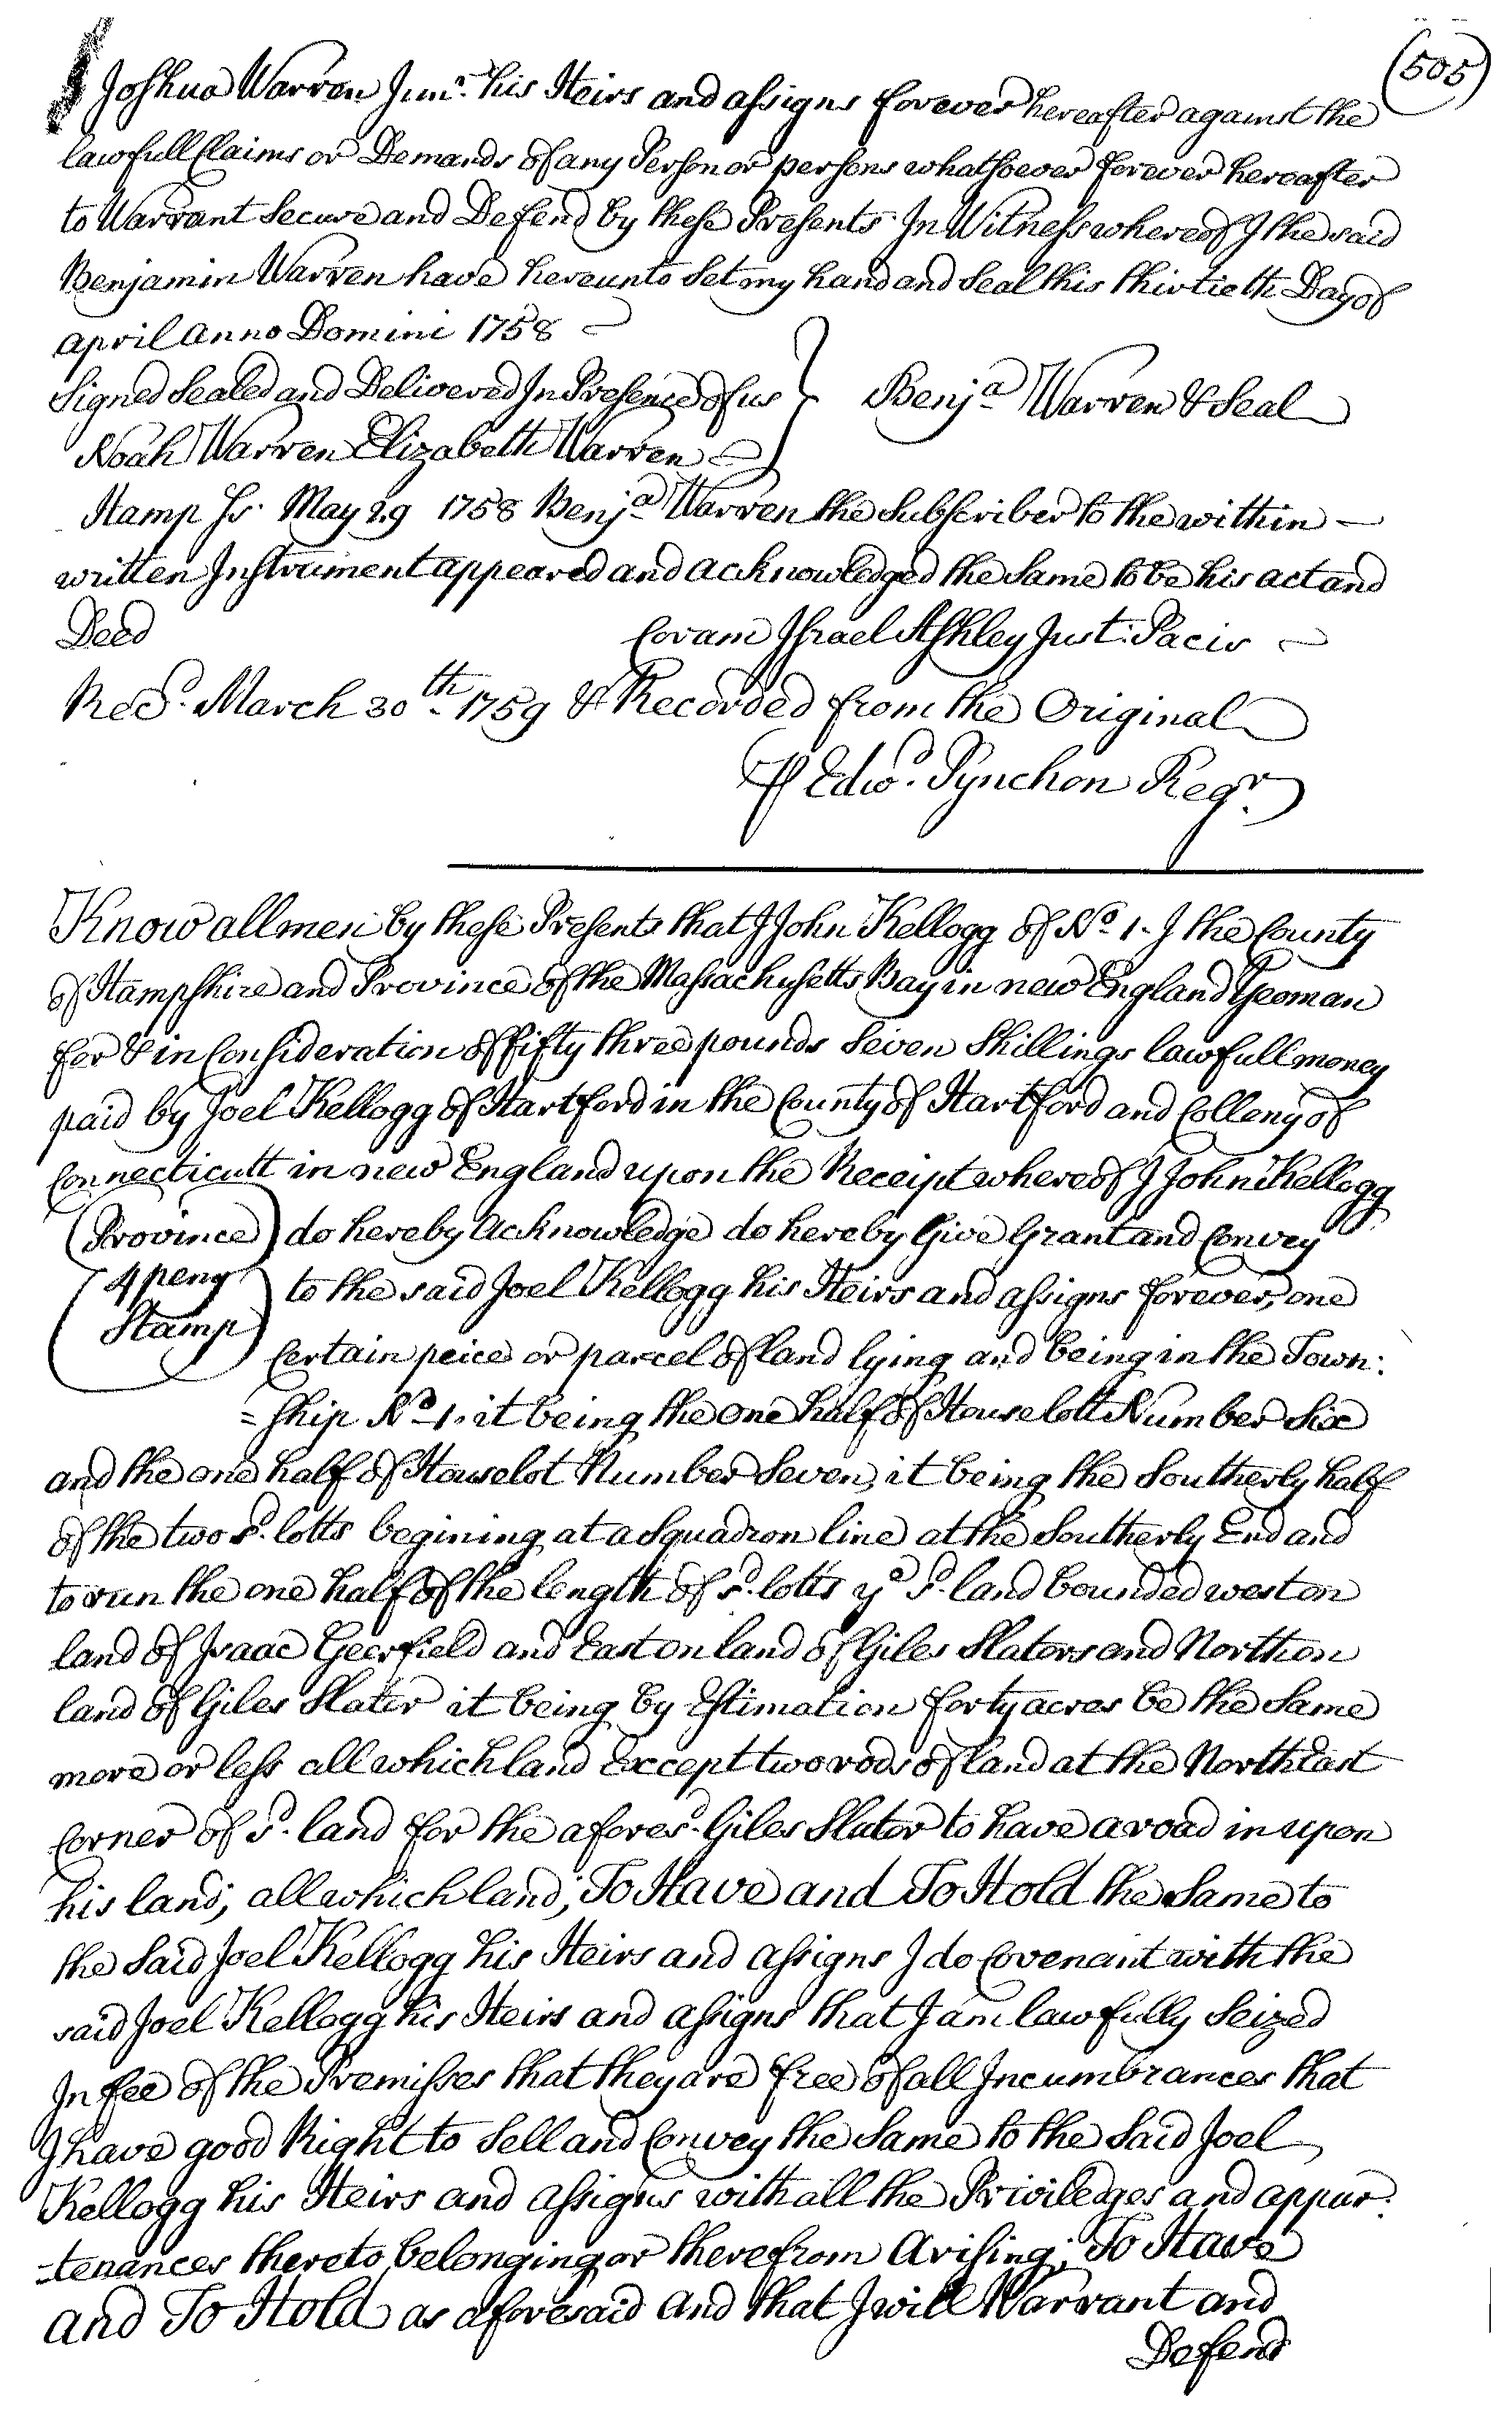 (505)
Joshua Warren Junr. his Heirs and assigns forever hereafter against the
lawfull Claims or Demands of any Person or persons whatsoever forever hereafter
to Warrant Secure and Defend by these Presents In Witness whereof I the said
Benjamin Warren have hereunto Set my hand and Seal this thirtieth Day of
april anno Domini 1758
Signed Sealed and Delivered In Presence of us } Benja Warren & Seal
Noah Warren Elizabeth Warren
Hamp Ss. May 29 1758 Benja Warren the Subscriber to the within
written Instrument appeared and acknowledged the Same to be his act and
Deed Coram Israel Ashley Just: Pacis
Recd. March 30th. 1759 & Recorded from the Original
Edwd. Pynchon Regr.
Know all men by these Presents that I John Kellogg of No. 1. I the County
of Hampshire and Province of the Massachusetts Bay in new England Yeoman
for & in Consideration of Fifty three pounds Seven Shillings lawfull money
paid by Joel Kellogg of Hartford in the County of Hartford and Colleny of
Connecticutt in new England upon the Receipt whereof I John Kellogg
(Province) do hereby acknowledge do hereby Give Grant and Convey
(4 peny to the said Joel Kellogg his Heirs and assigns forever, one
Stamp) Certain peice or parcel of land lying and being in the Town:
=ship No. 1. it being the one half of Houselott Number Six
and the one half of Houselot Number Seven, it being the Southerly half
of the two sd. lotts begining at a Squadron line at the Southerly End and
to run the one half of the length of sd. lotts ye sd. land bounded west on
land of Isaac Geerfield and East on land of Giles Slaters and North on
land of Giles Slater it being by Estimation forty acres be the Same
more or less all which land Except two rods of land at the North East
Corner of sd. land for the afores'd. Giles Slator to have a road in upon
his land, all which land, To Have and To Hold the Same to
the Said Joel Kellogg his Heirs and assigns I do Covenant with the
said Joel Kellogg his Heirs and assigns that I am lawfully Seized
In fee of the Premisses that they are free of all Incumbrances that
I have good Right to Sell and Convey the Same to the Said Joel
Kellogg his Heirs and assigns with all the Priviledges and appur:
-tenances thereto belonging or therefrom Arising, To Have
and To Hold as aforesaid And that I will Warrant and
Defend